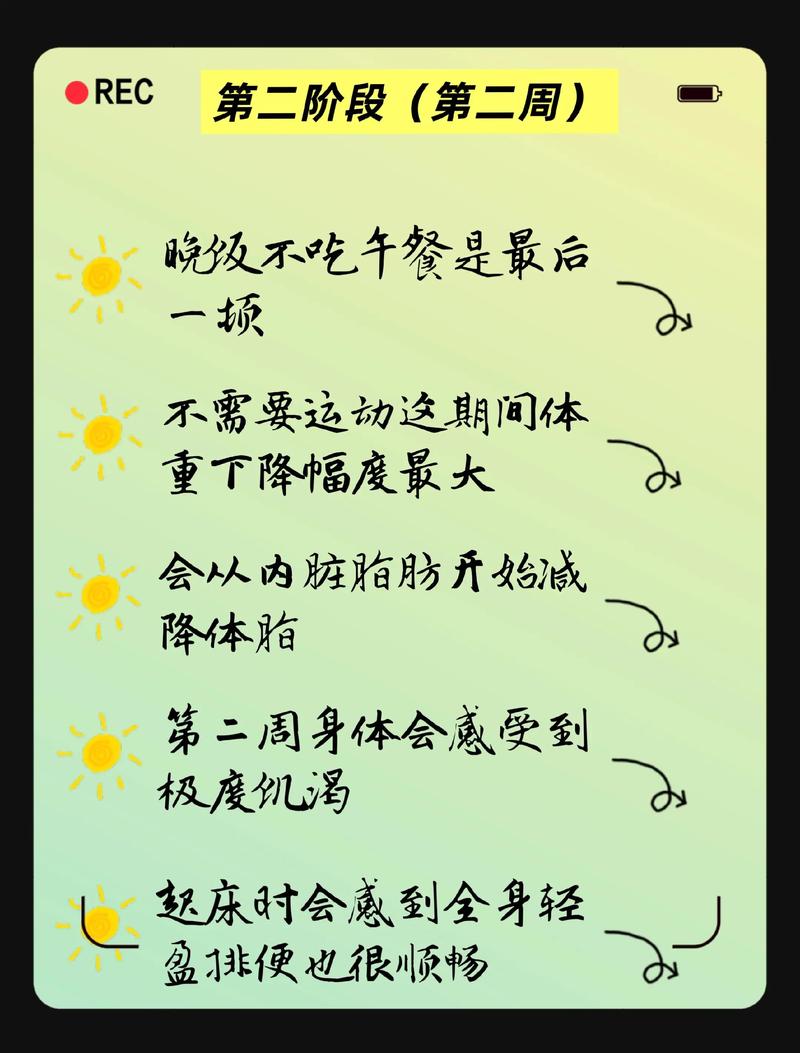 REC
第二阶段（第二周）
晚饭不吃午餐是最后
一顿
不需要运动这期间体
重下降幅度最大
会从内脏脂肪开始减
降体脂
第二周身体会感受到
极度饥渴
起床时会感到全身轻
盈排便也很顺畅